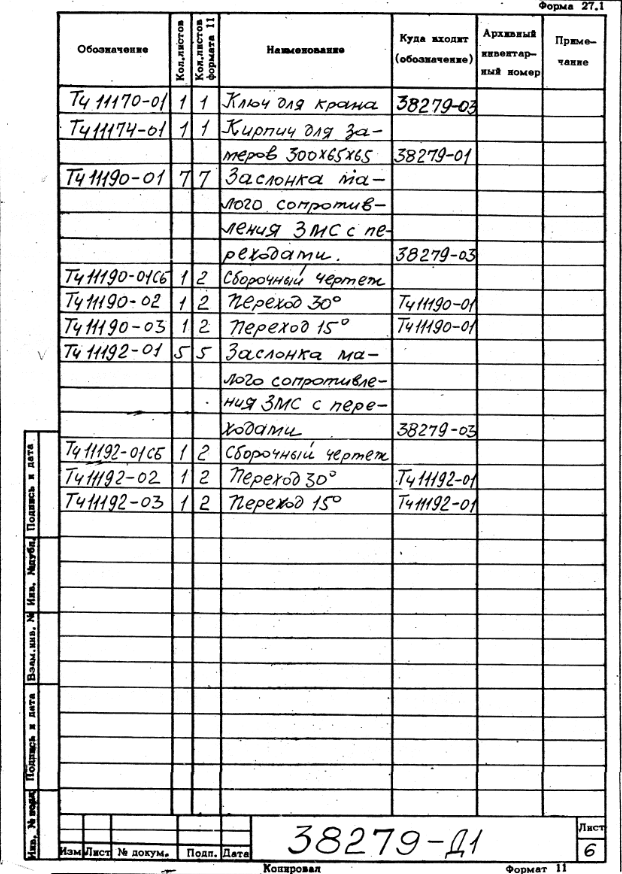 Форма 27.1
Обозначение Кол.листов Кол.листов формата 11 Наименование Куда входит (обозначение) Архивный инвентарный номер Примечание
Тч 11170-01 1 1 Ключ для крана 38279-03
Тч 11174-01 1 1 Кирпич для за-
меров 300х65х65 38279-01
Тч 11190-01 7 7 Заслонка ма-
лого сопротив-
ления ЗМС с пе-
реходами. 38279-03
Тч 11190-01СБ 1 2 Сборочный чертеж
Тч 11190-02 1 2 Переход 30° Тч 11190-01
Тч 11190-03 1 2 Переход 15° Тч 11190-01
Тч 11192-01 5 5 Заслонка ма-
лого сопротивле-
ния ЗМС с пере-
ходами 38279-03
Тч 11192-01СБ 1 2 Сборочный чертеж
Тч 11192-02 1 2 Переход 30° Тч 11192-01
Тч 11192-03 1 2 Переход 15° Тч 11192-01
Инв. № подл. Подпись и дата Взам.инв. № Инв. №дубл. Подпись и дата
38279-Д1
Лист
6
Изм Лист № докум. Подп. Дата
Копировал Формат 11